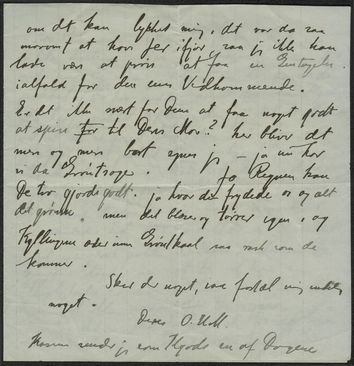 om det kan lykkes mig, det var da saa
morsomt at hos Jer ifjor, saa jeg ikke kan
lade være at prøve at faa en
ialfald for den ene Vedkommende.
Er det ikke nært for Dem at faa noget godt
at spise for til Deres Mor? her blivr det
mer og mer bart synes jeg – ja nu har
vi da Grøntsager. Ja Regnen kan
De tro gjorde godt. ja hvor den frydede os og alt
det grønne. men det blæser og tørrer igen, og
Kyllingerne æder min Grønkaal saa rask som de
kommer.
Sker der noget, saa fortæl mig endelig
noget.
Deres O.
sender jeg som en af Dagene